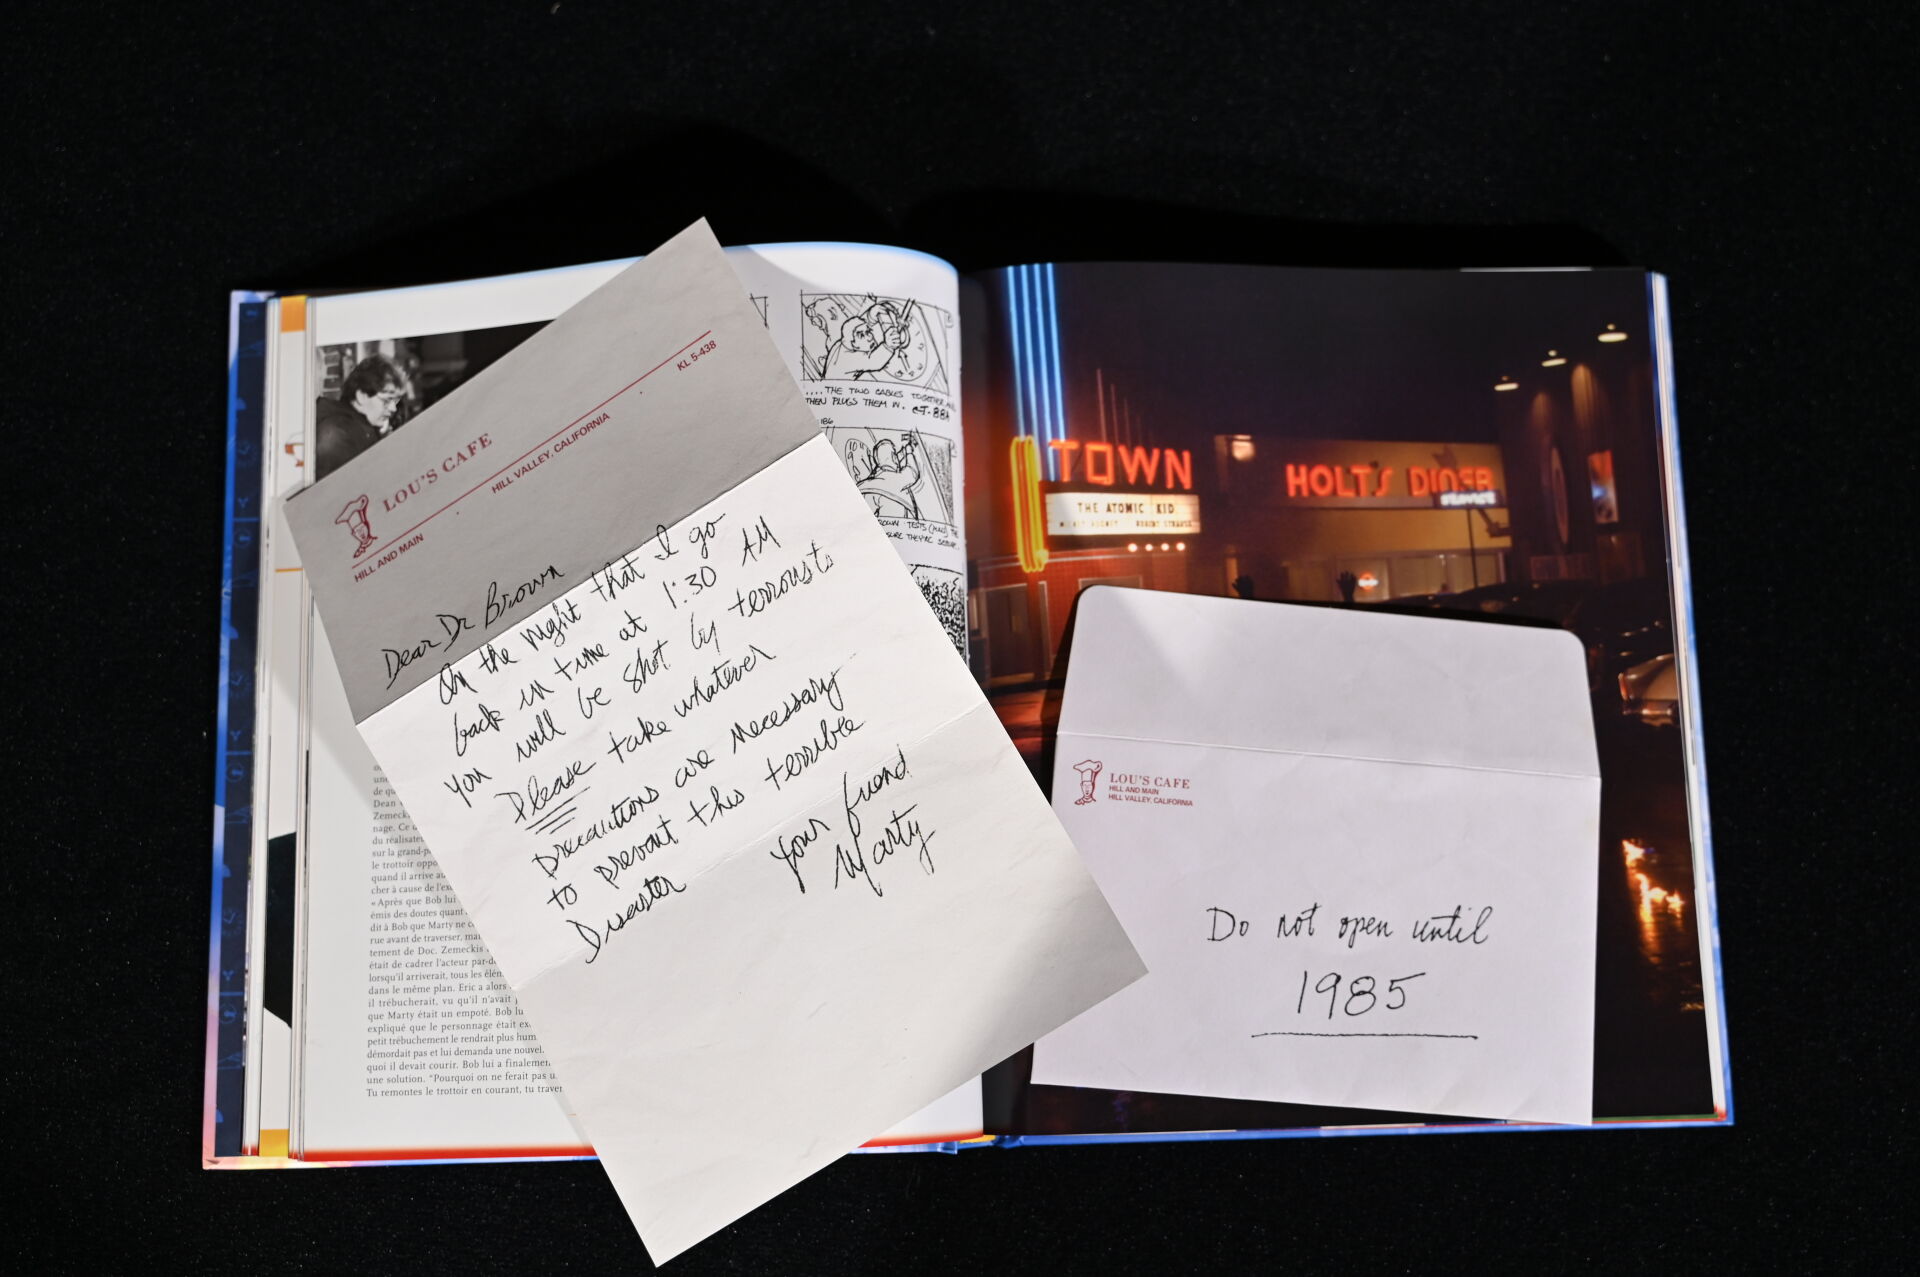 LOU'S CAFE
KL 5-438
HILL AND MAIN
HILL VALLEY, CALIFORNIA
Dear Dr Brown
On the night that I go
back in time at 1:30 AM
You will be shot by terrorists
Please take whatever
precautions are necessary
to prevent this terrible
Disaster
Your friend
Marty
.... THE TWO CABLES TOGETHER
THEN PLUGS THEM IN. CT-88A
186
TESTS
SURE THEY'RE SECURE.
une
de qu
Dean
Zemeck
nage. Ce
du réalisate
sur la grand-p
le trottoir oppo
quand il arrive au
cher à cause de l'ex
« Après que Bob lui
émis des doutes quant
dit à Bob que Marty ne c
rue avant de traverser, mai
tement de Doc. Zemeckis
était de cadrer l'acteur par-d
lorsqu'il arriverait, tous les élém
dans le même plan. Eric a alors
il trébucherait, vu qu'il n'avait
que Marty était un empoté. Bob lu
expliqué que le personnage était ex
petit trébuchement le rendrait plus hum
démordait pas et lui demanda une nouvel
quoi il devait courir. Bob lui a finalemen
une solution. "Pourquoi on ne ferait pas u
Tu remontes le trottoir en courant, tu traver
TOWN
THE ATOMIC KID
HOLT'S DINER
SERVICE
LOU'S CAFE
HILL AND MAIN
HILL VALLEY, CALIFORNIA
Do not open until
1985